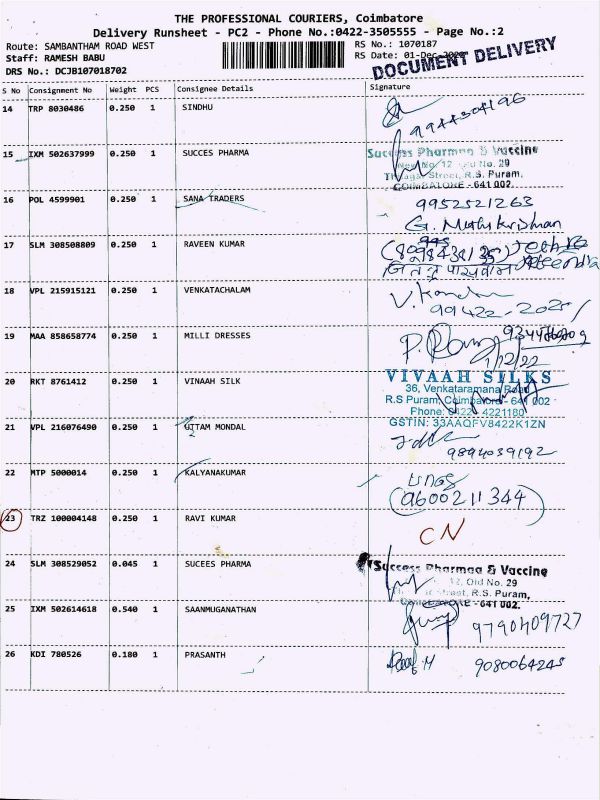 THE PROFESSIONAL COURIERS, Coimbatore
Delivery Runsheet - PC2 - Phone No.:0422-3505555 - Page No.:2
Route: SAMBANTHAM ROAD WEST
Staff: RAMESH BABU
DRS No.: DCJB107018702
RS No.: 1070187
RS Date: 01-Dec
DOCUMENT DELIVERY
S No Consignment No Weight PCS Consignee Details Signature
14 TRP 8030486 0.250 1 SINDHU
9944304196
15 IXM 502637999 0.250 1 SUCCES PHARMA
Success Pharmaa & Vaccine
New No. 12, Old No. 29
Street, R.S. Puram,
COIMBATORE - 641 002.
16 POL 4599901 0.250 1 SANA TRADERS 9952521263
17 SLM 308508809 0.250 1 RAVEEN KUMAR
18 VPL 215915121 0.250 1 VENKATACHALAM
19 MAA 858658774 0.250 1 MILLI DRESSES
1/12/22
20 RKT 8761412 0.250 1 VINAAH SILK
VIVAAH SILKS
36, Venkataramana Road
R.S Puram, Coimbatore - 641 002
Phone: 0422 - 4221180
GSTIN: 33AAQFV8422K1ZN
21 VPL 216076490 0.250 1 UTTAM MONDAL
9894039192
22 MTP 5000014 0.250 1 KALYANAKUMAR
(9600211344)
23 TRZ 100004148 0.250 1 RAVI KUMAR CN
24 SLM 308529052 0.045 1 SUCEES PHARMA
Success Pharmaa & Vaccine
12, Old No. 29
Street, R.S. Puram,
COIMBATORE - 641 002.
25 IXM 502614618 0.540 1 SAANMUGANATHAN
9790409727
26 KDI 780526 0.180 1 PRASANTH 9080064245